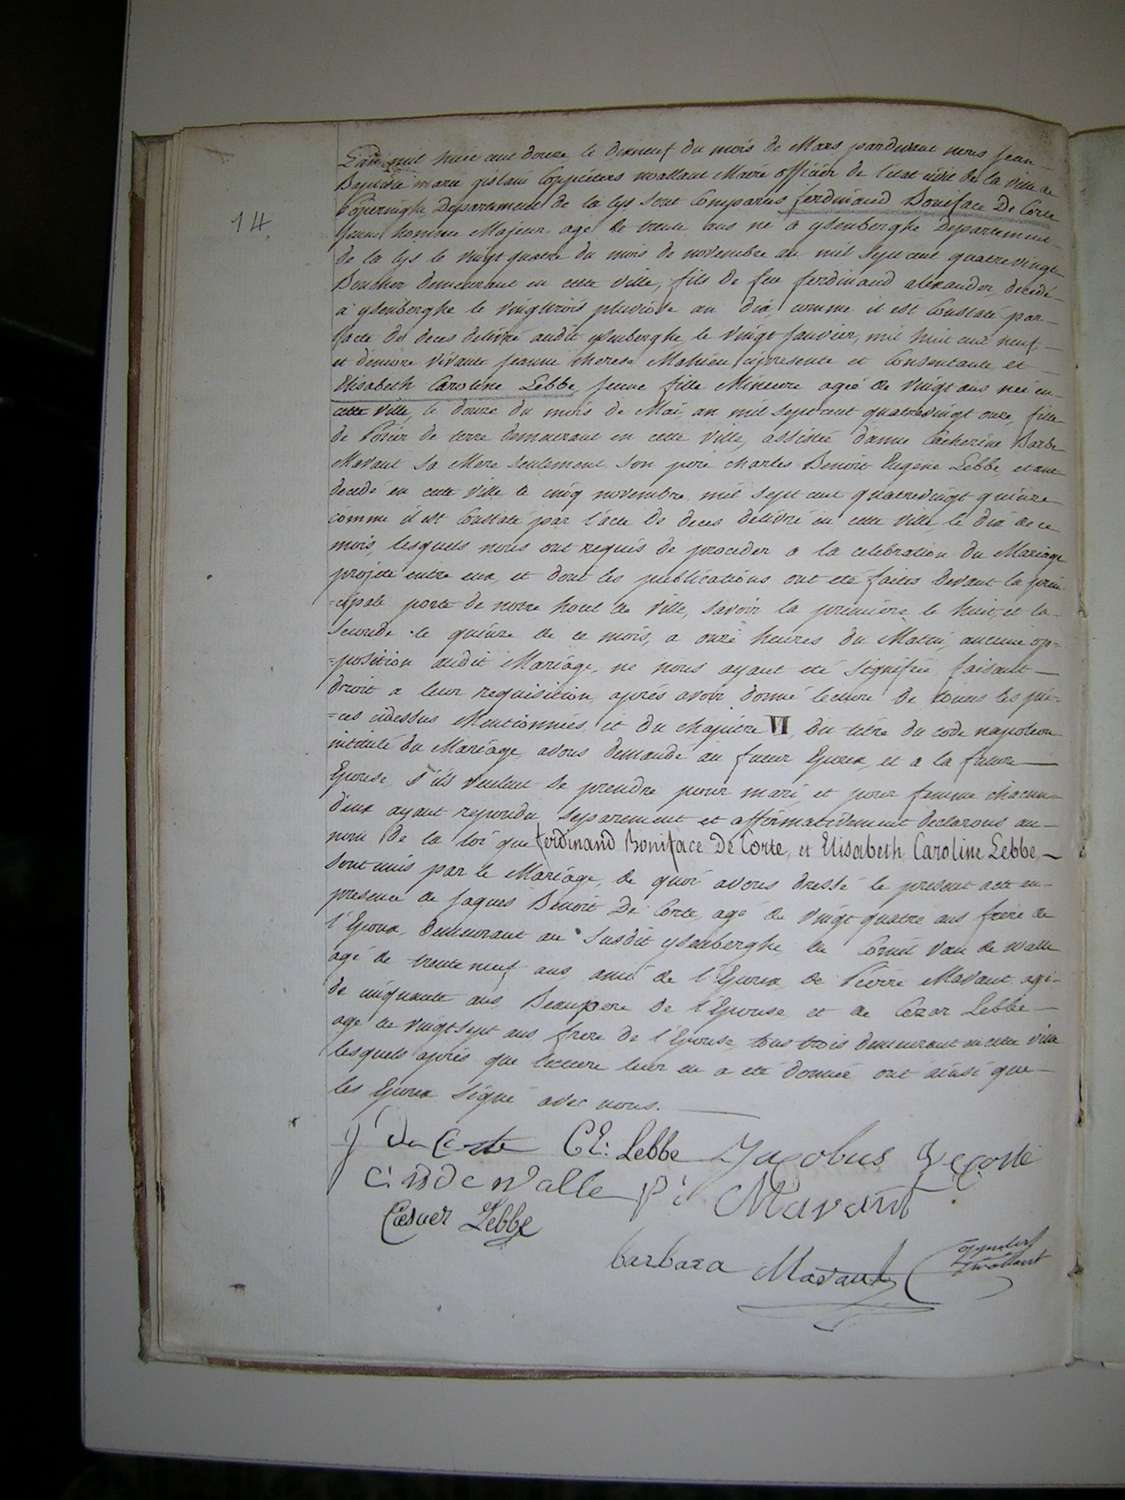 L'an mil huit cent douze le dixneuf du mois de Mars pardevant nous Jean
Baptiste marie gislain Coppieters wallant Maire officier de l'état civil de la ville de
Poperinghe Departement de la Lys sont Comparus ferdinand Boniface De Corte
14 Jeune homme Majeur agé de trente ans né à ysenberghe Departement
de la Lys le vingt quatre du mois de novembre an mil Sept cent quatre vingt
Boucher demeurant en cette ville, fils de feu ferdinand alexander, decedé
à ysenberghe le vingttrois pluviose an dix, comme il est Constaté par
l'acte de deces delivré audit ysenberghe, le vingt Janvier, mil huit cent neuf
et d'encore vivante Jeanne therese Mahieu cipresente et Consentante et
Elisabeth Caroline Lebbe Jeune fille Mineure agée de vingt ans née en
cette ville, le douze du mois de Mai an mil Sept cent quatrevingt onze, fille
de Potier de terre demeurant en cette ville, assistée d'anne Catherine Barbe
Mavaut Sa Mere Seulement, Son pere Charles Benoit Eugene Lebbe, etant
decedé en cette ville le cinq novembre mil Sept cent quatrevingt quinze
comme il est Constaté par l'acte de deces delivré en cette ville, le dix de ce
mois, lesquels nous ont requis de proceder a la celebration du Mariage
projeté entre eux, et dont les publications ont eté faites devant la prin-
=cipale porte de notre hotel de ville, Savoir la premiere, le huit, et la
Seconde le quinze de ce mois, a onze heures du Matin, aucune op=
=position audit Mariage, ne nous ayant eté Signifiée, faisant
droit a leur requisition, après avoir donné lecture de toutes les pie-
=ces cidessus Mentionnées, et du chapitre VI, du titre du code napoleon
intitulé du Mariage, avons demandé au futur Epoux, et a la future
Epouse, S'ils veulent se prendre pour mari, et pour femme chacun
d'eux ayant repondu Separement et affirmativement declarons au
nom de la loi que ferdinand Boniface De Corte, et Elisabeth Caroline Lebbe,
Sont unis par le Mariage, de quoi avons dressé le present acte en
presence de Jaques Benoit De Corte, agé de vingt quatre ans frere de
l'Epoux, demeurant au Susdit ysenberghe, de Cornil van de walle
agé de trente neuf ans ami de l'Epoux, de Pierre Mavaut, agé
de cinquante ans Beaupere de l'Epouse et de Cezar Lebbe
agé de vingt Sept ans frere de l'Epouse, tous trois demeurant en cette ville
lesquels après que lecture leur en a eté donnée ont ainsi que
les Epoux Signé avec nous.
f De Corte C E: Lebbe Jacobus De Corte
C: v de Walle p: Mavaut
Caesaer Lebbe
barbara Mavaut Coppieters
wallant